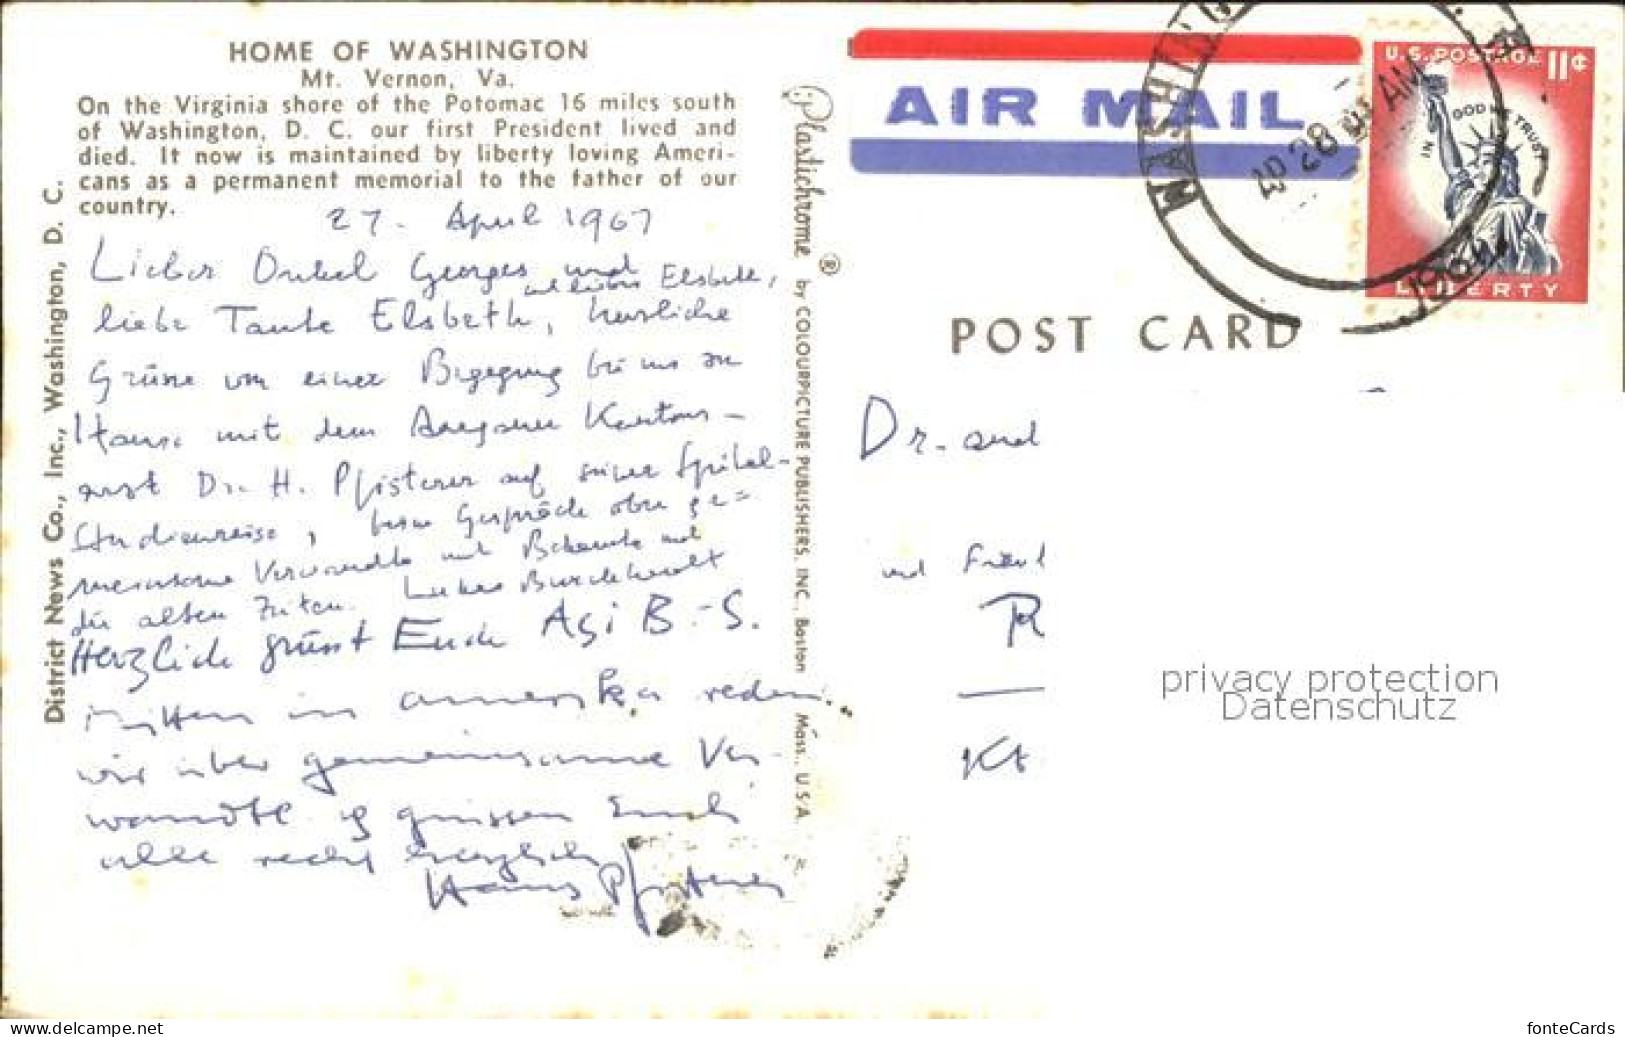 HOME OF WASHINGTON
Mt. Vernon, Va.
On the Virginia shore of the Potomac 16 miles south
of Washington, D. C. our first President lived and
died. It now is maintained by liberty loving Ameri-
cans as a permanent memorial to the father of our
country.
27. April 1967
Lieber Onkel Georges und
Elsbeth,
liebe Tante Elsbeth, herzliche
Grüsse von einer Begegnung bei uns zu
Hause mit dem Aargauer Kantons-
arzt Dr. H. Pfisterer auf seiner Spital-
Studienreise, beim Gespräche über ge=
meinsame Verwandte und Bekannte und
die alten Zeiten. Lukas Burckhardt
Herzlich grüsst Euch Agi B.-S.
Mitten in Amerika reden
wir über gemeinsame Ver-
wandte & grüssen Euch
alle recht herzlich
Hans Pfisterer
District News Co., Inc., Washington, D. C.
Plastichrome ® by COLOURPICTURE PUBLISHERS, INC., Boston Mass., U.S.A.
AIR MAIL
WASHINGTON
AP 28 AM
1967
U.S. POSTAGE 11¢
IN GOD WE TRUST
LIBERTY
POST CARD
Dr. und
und Frau
R
privacy protection
Datenschutz
www.delcampe.net
fonteCards